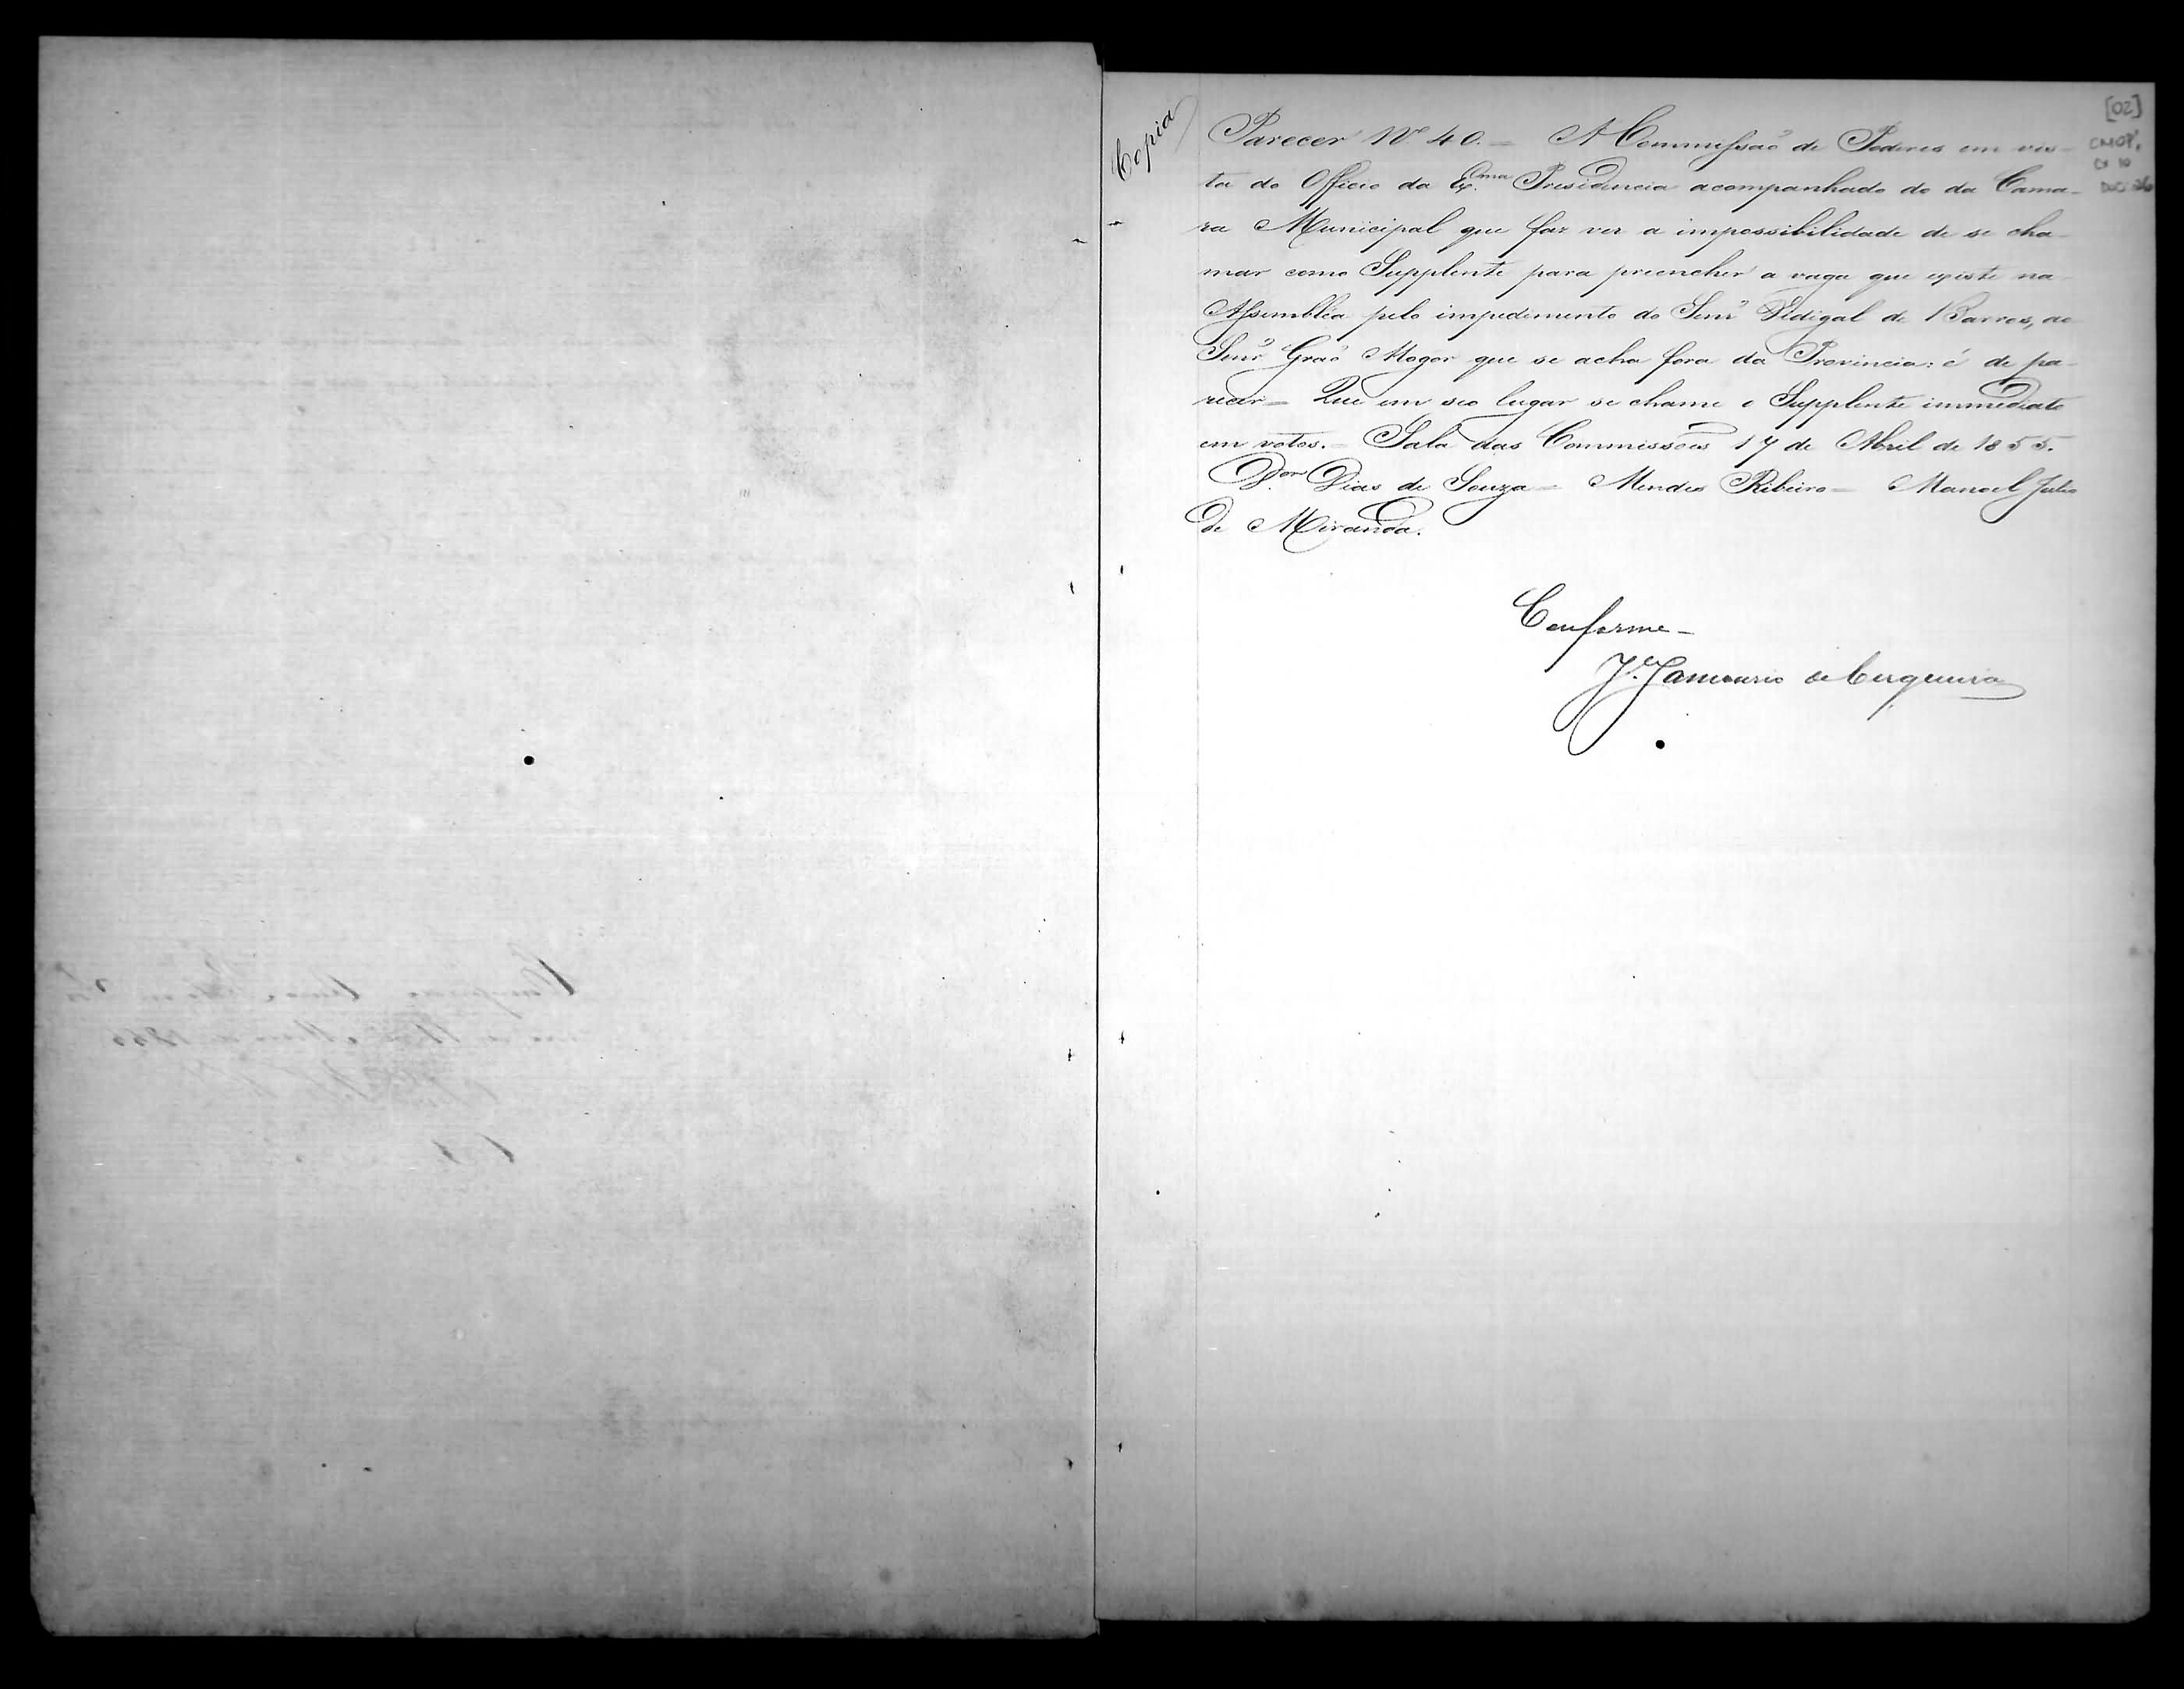 Copia
[02]
CMOP,
CX 10
DOC. 26
Parecer Nº 40. = A Commissaõ de Poderes em vis-
ta do Officio da Ex.ma Presidencia acompanhado do da Cama-
ra Municipal que faz ver a impossibilidade de se cha-
mar como Supplente para preencher a vaga que existe na
Assembléa pelo impedimento do Senr Vidigal de Barros, ao
Senr Graõ Mogor que se acha fora da Provincia: é de pa-
recer = Que em seo lugar se chame o Supplente immediato
em votos. = Sala das Commissões 17 de Abril de 1855.
D.or Dias de Souza = Mendes Ribeiro = Manoel Julio
de Miranda.
Conforme -
J.e Januario de Cerqueira